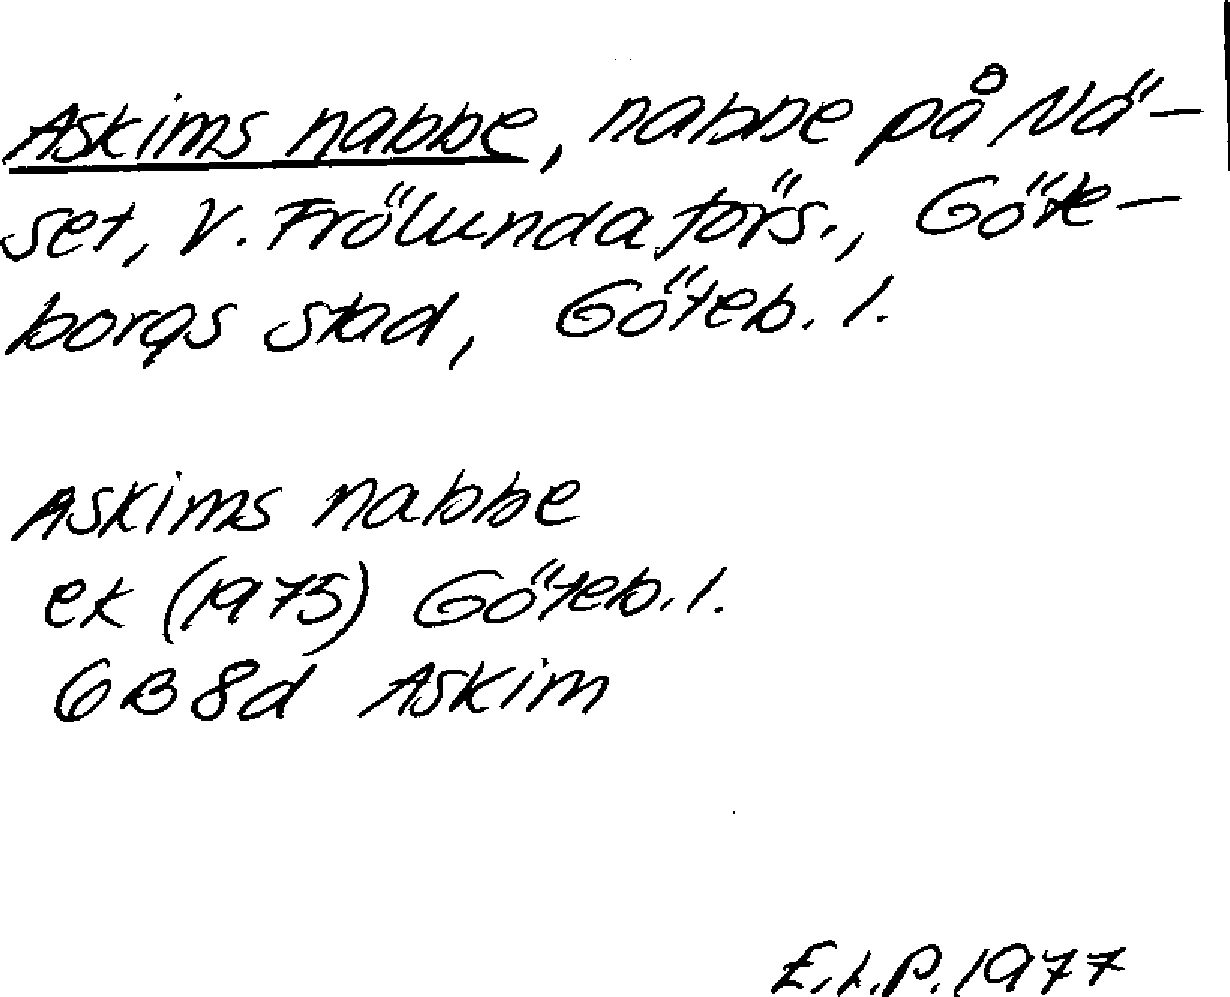 Askims nabbe, nabbe på Nä-
set, V. Frölunda förs., Göte-
borgs stad, Göteb. l.
Askims nabbe
ek (1975) Göteb. l.
6B 8d Askim
E.L.P. 1977